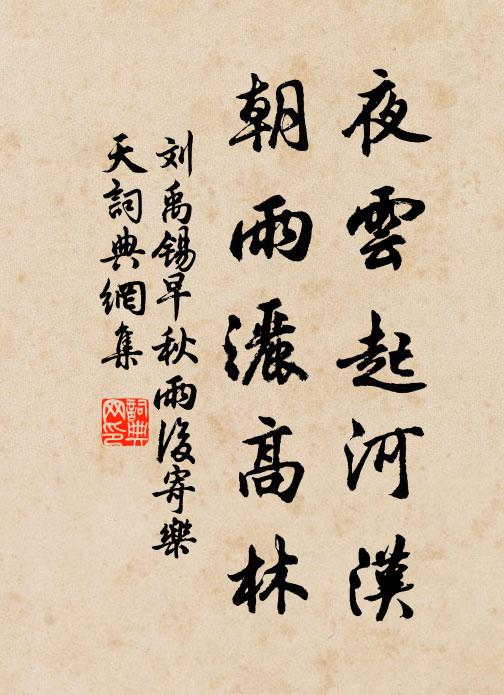 夜雲起河漢
朝雨灑高林
刘禹锡早秋雨後寄樂
天詞典網集
詞典
网印